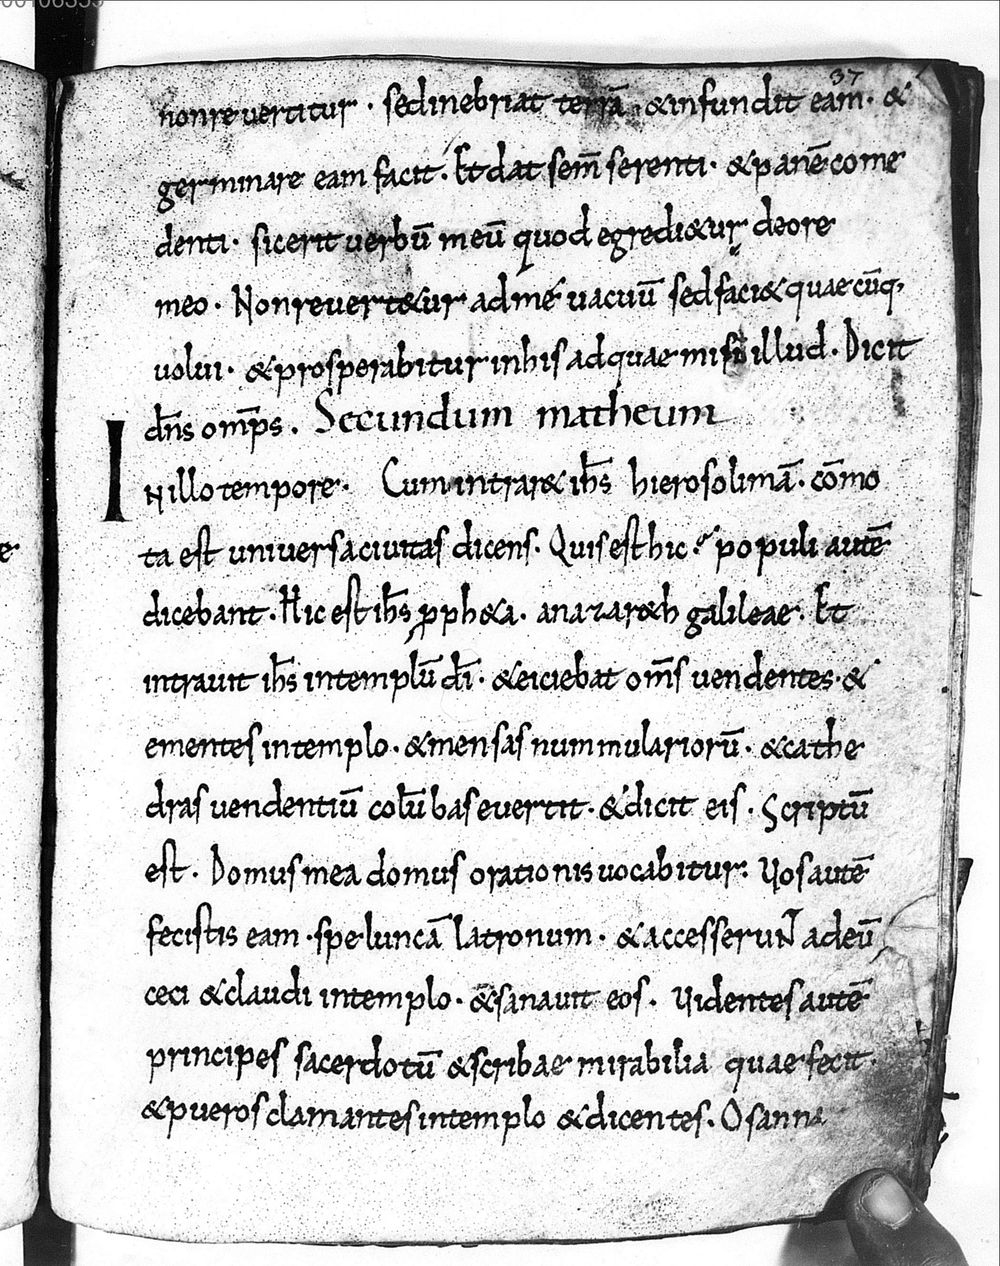 00106359
37
non revertitur · sed inebriat terrā · & infundit eam · &
germinare eam facit · Et dat sem̄ serenti · & panē come
denti · sic erit verbū meū quod egredi&ur de ore
meo · Non revert&ur ad me vacuū sed faci& quaecūq,
uolui · & prosperabitur in his ad quae misi illud · Dicit
dn̄s om̄ps . Secundum matheum
In illo tempore · Cum intrar& ih̄s hierosolimā · cōmo
ta est universa civitas dicens · Quis est hic · populi autē
dicebant · Hic est ih̄s ꝓph&a · a nazar&h galileae · Et
intravit ih̄s in templū dī · & eiciebat om̄s vendentes · &
ementes in templo · & mensas nummulariorū · & cathe
dras vendentiū colūbas evertit · & dicit eis · Scriptū
est · Domus mea domus orationis vocabitur : Vos autē
fecistis eam · speluncā latronum · & accesserunt̄ ad eū
ceci & claudi in templo · & sanavit eos · Videntes autē
principes sacerdotū & scribae mirabilia quae fecit ·
& pueros clamantes in templo & dicentes · Osanna
e